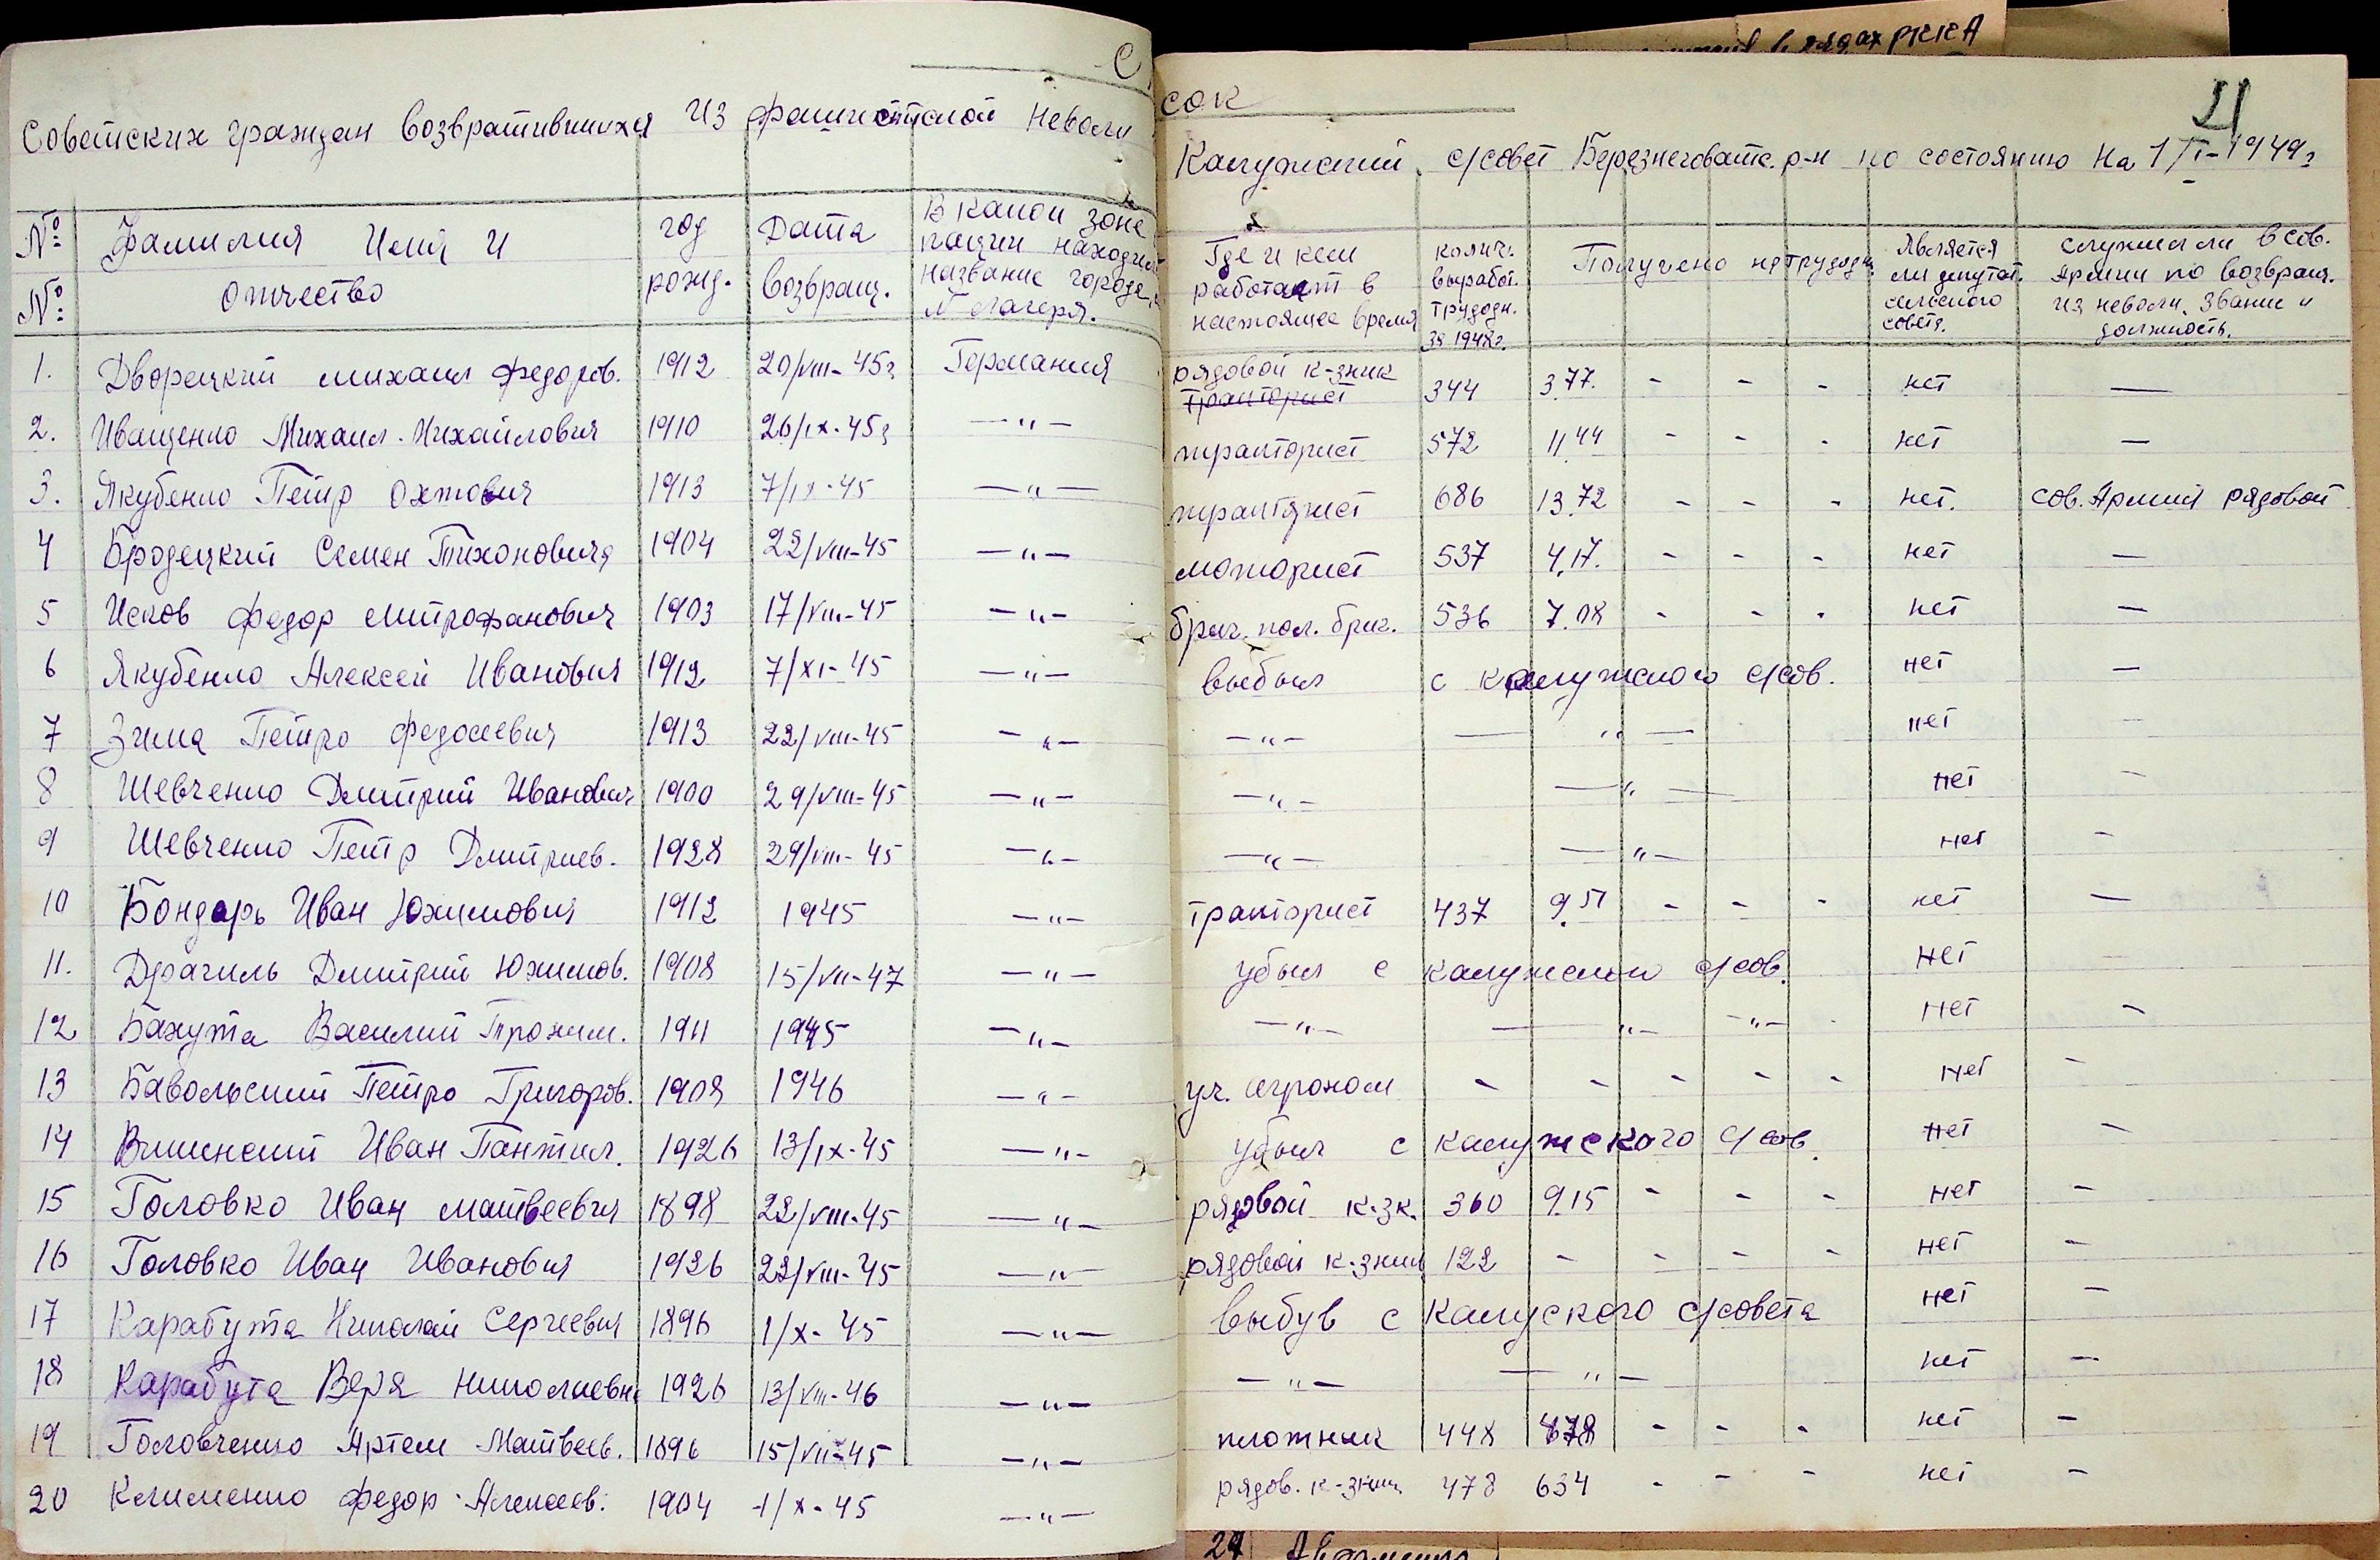 рядах РККА
Список
21
Советских граждан возвратившихся из фашистской неволи Калужский с/совет Березнеговатс. р-н по состоянию на 1/I-1949г
№ № Фамилия Имя и отчество
год рожд.
Дата возвращ.
В какой зоне
название города,
№ лагеря.
Где и кем
работает в
настоящее время
колич.
выработ.
трудодн.
за 1948г.
Получено на трудодн.
Является
ли депутат.
сельского
совета.
служил ли в Сов.
Армии по возвращ.
из неволи. Звание и
должность.
1. Дворецкий Михаил Федоров. 1912 20/VIII-45г Германия рядовой к-зник 344 3.77. - - - нет —
тракторист
2. Иващенко Михаил Михайлович 1910 26/IX-45г —"— тракторист 572 11.44 - - - нет —
3. Якубенко Петр Охтович 1913 7/IX-45 —"— тракторист 686 13.72 - - - нет. сов. Армия рядовой
4 Бродецкий Семен Тихонович 1904 22/VIII-45 —"— моторист 537 4.17. - - - нет —
5 Исков Федор Митрофанович 1903 17/VIII-45 —"— бриг. пол. бриг. 536 7.08 - - - нет —
6 Якубенко Алексей Иванович 1912 7/XI-45 —"— выбыл с калужского с/сов. нет —
7 Зима Петро Федосеевич 1913 22/VIII-45 —"— —"— —"— нет —
8 Шевченко Дмитрий Иванович 1900 29/VIII-45 —"— —"— —"— нет —
9 Шевченко Петр Дмитриев. 1928 29/VIII-45 —"— —"— —"— нет —
10 Бондарь Иван Юхимович 1912 1945 —"— тракторист 437 9.51 - - - нет —
11. Драгиль Дмитрий Юхимов. 1908 15/VII-47 —"— убыл с калужского с/сов. нет —
12 Бахута Василий Трохим. 1911 1945 —"— —"— —"— —"— нет —
13 Бавольский Петро Григоров. 1908 1946 —"— уч. агроном - - - - - нет —
14 Иван Пантил. 1926 13/IX-45 —"— убыл с калужского с/сов. нет —
15 Головко Иван Матвеевич 1898 22/VIII-45 —"— рядовой к-зк. 360 9.15 - - - нет —
16 Головко Иван Иванович 1926 22/VIII-45 —"— рядовой к-зник 122 - - - - нет —
17 Карабута Николай Сергеевич 1896 1/X-45 —"— выбув с Калуского с/совета нет —
18 Карабута Вера Николаевна 1926 13/VIII-46 —"— —"— —"— нет —
19 Головченко Артем Матвеев. 1896 15/VII-45 —"— плотник 448 878 - - - нет —
20 Клименко Федор Алексеев. 1904 1/X-45 —"— рядов. к-зник 478 634 - - - нет —